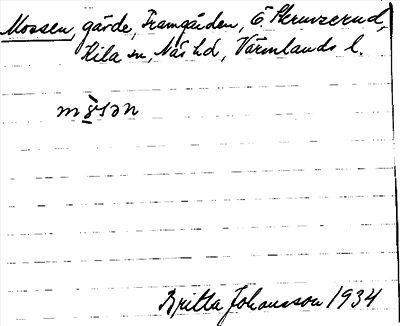 Mossen, gärde, Framgården, Ö. Skruvserud,
Kila sn, Näs hd, Värmlands l.
Britta Johansson 1934